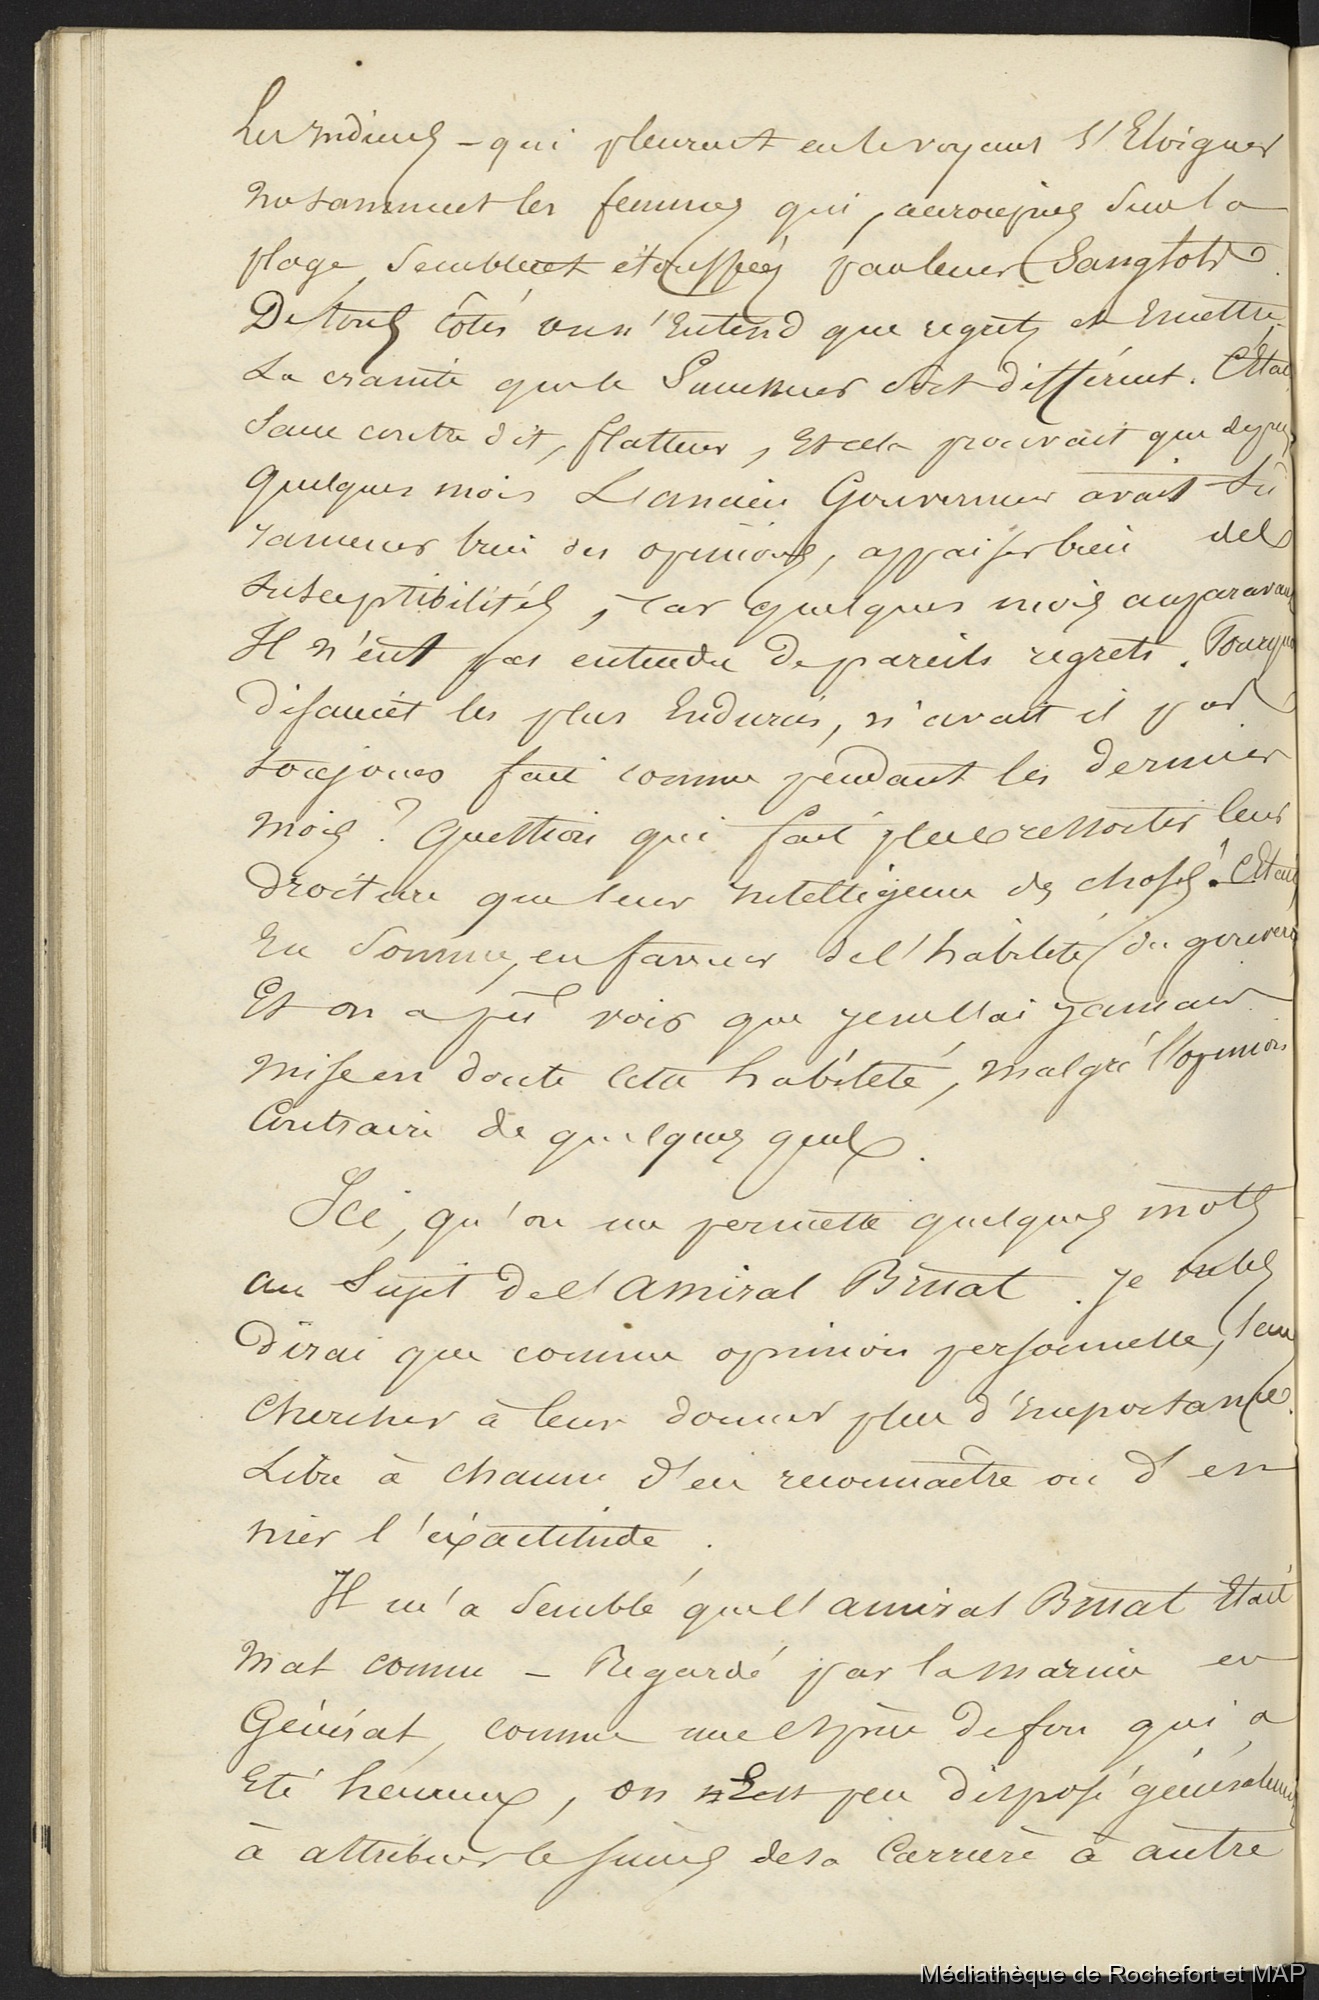 Les Indiens – qui pleurent en le voyant s'Eloigner
notamment les femmes qui, accroupies sur la
plage, semblent étouffées par leurs Sanglots.
De tous côtés on n'Entend que regrets et Emettre
La crainte que le Successeur soit différent. C'Etait
sans contredit, flatteur, Et cela prouvait que depuis
quelques mois L'ancien Gouverneur avait Sû
ramener bien des opinions, appaiser bien des
susceptibilités, car quelques mois auparavant
Il n'eut pas entendu de pareils regrets. Pourquoi
disaient les plus Endurcis, n'avait il pas
toujours fait comme pendant les dernier
mois? Question qui fait plus ressortir leur
droiture que leur intelligence des choses. C'Etait
En Somme, en faveur de l'habileté du gouverneur
Et on a pû voir que je n'ai jamais
mise en doute cette habileté, malgré l'opinion
Contraire de quelques quns.
Ici, qu'on me permette quelques mots
au Sujet de l'amiral Bruat. Je ne les
dirai que comme opinion personnelle, sans
chercher à leur donner plus d'Importance.
Libre à chacun d'en reconnaître ou d'en
nier l'éxactitude.
Il m'a Semblé que l'amiral Bruat Etait
mal connu – Regardé par la marine en
Général, comme une espèce de fou qui a
Eté heureux, on Est peu disposé généralement
à attribuer le succès de sa Carrière à autre
Médiathèque de Rochefort et MAP